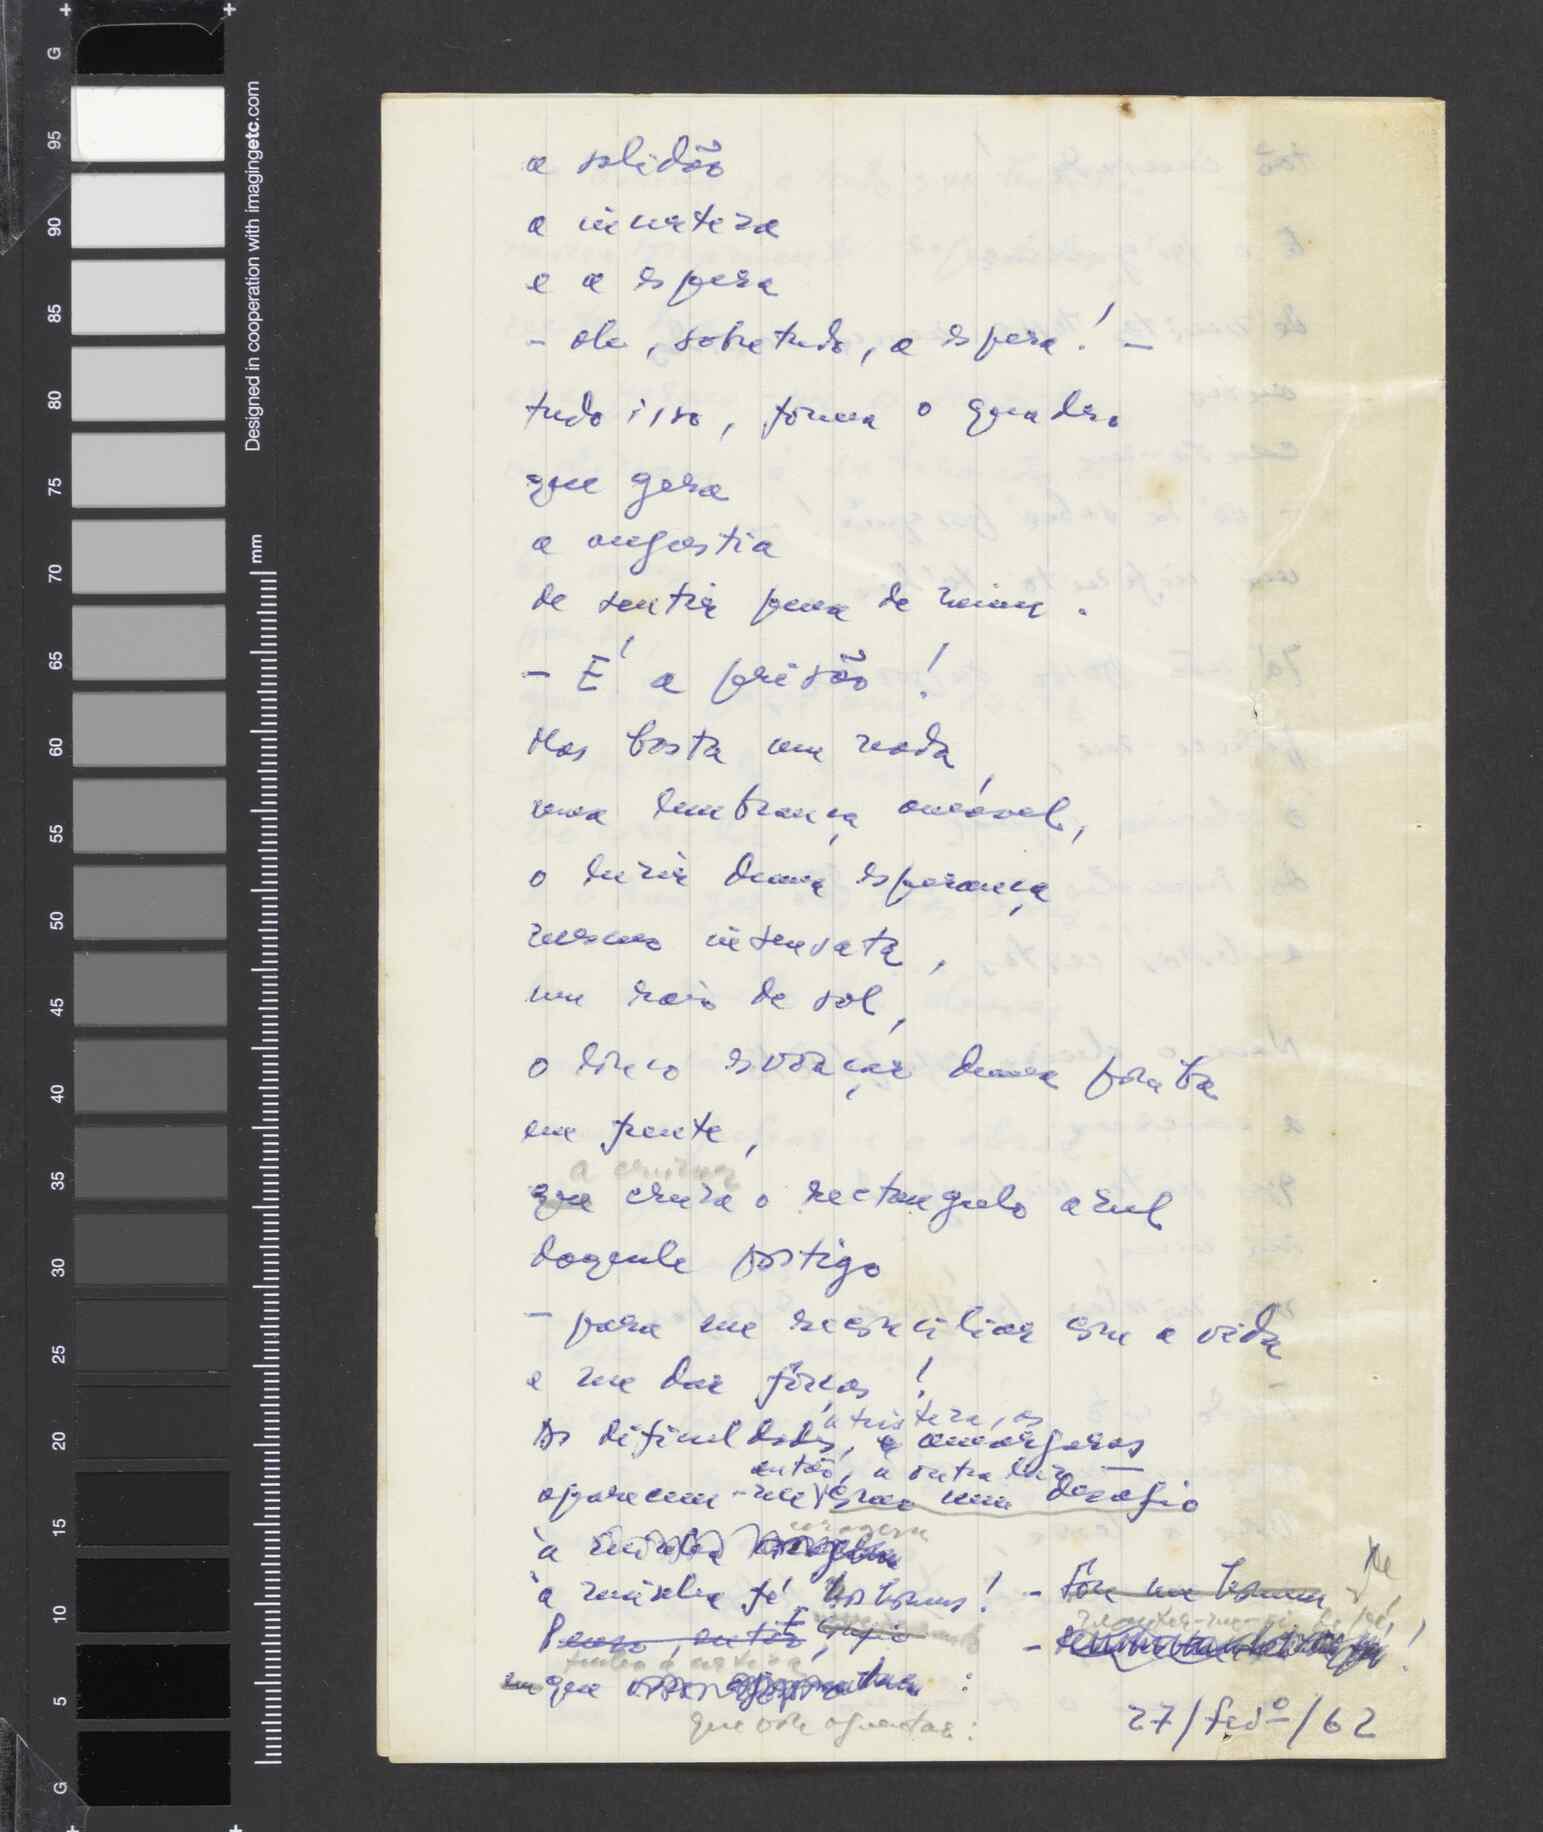 a solidão
a incerteza
e a espera
- oh, sobretudo, a espera! -
tudo isso, forma o quadro
que gera
a angústia
de sentir pena de mim.
- É a prisão!
Mas basta um nada,
uma lembrança amável,
o luzir duma esperança
mesmo insensata,
um raio de sol,
o branco esvoaçar duma pomba
em frente,
a cruzar
que cruza o rectangulo azul
daquele postigo
- para me reconciliar com a vida
e me dar fôrças!
a tristeza, as
As dificuldades, e amarguras
então, à outra luz
aparecem-me como um desafio
coragem
à minha
à minha fé nos homens! -
Penso, então,
tenho a certeza
em que
que vou aguentar:
27/fevº/62
Designed in cooperation with imagingetc.com
mm
G
95
90
85
80
75
70
65
60
55
50
45
40
35
30
25
20
15
10
5
G